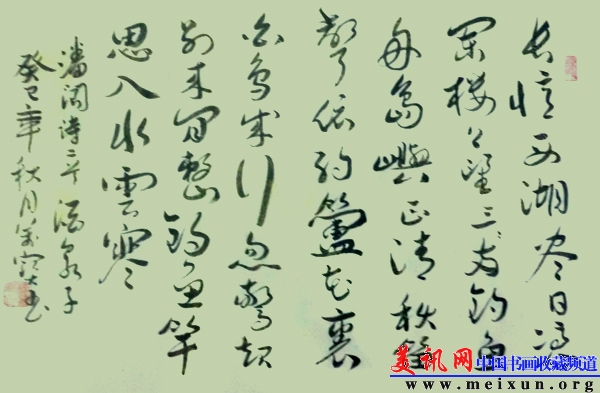 长忆西湖尽日凭
阑楼上望三三两两钓鱼
舟岛嶼正清秋笛
声依约蘆花裏
白鸟成行忽惊起
别来闲整钓鱼竿
思入水雲寒
潘阆诗一首 酒泉子
癸巳年秋月
美讯网 中国书画收藏频道
www.meixun.org